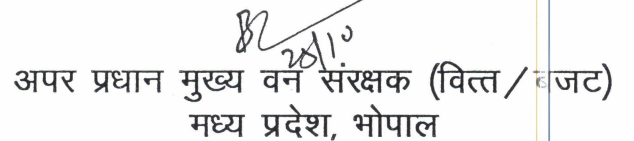 20/10
अपर प्रधान मुख्य वन संरक्षक (वित्त/बजट)
मध्य प्रदेश, भोपाल